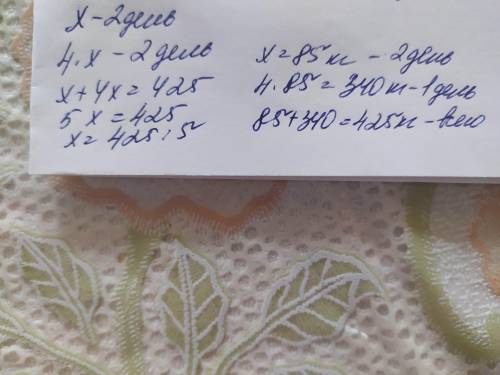 х – 2 день
4.х – 2 день
х + 4х = 425
5х = 425
х = 425 : 5
х = 85 кг – 2 день
4.85 = 340 кг – 1 день
85 + 340 = 425 кг – всего